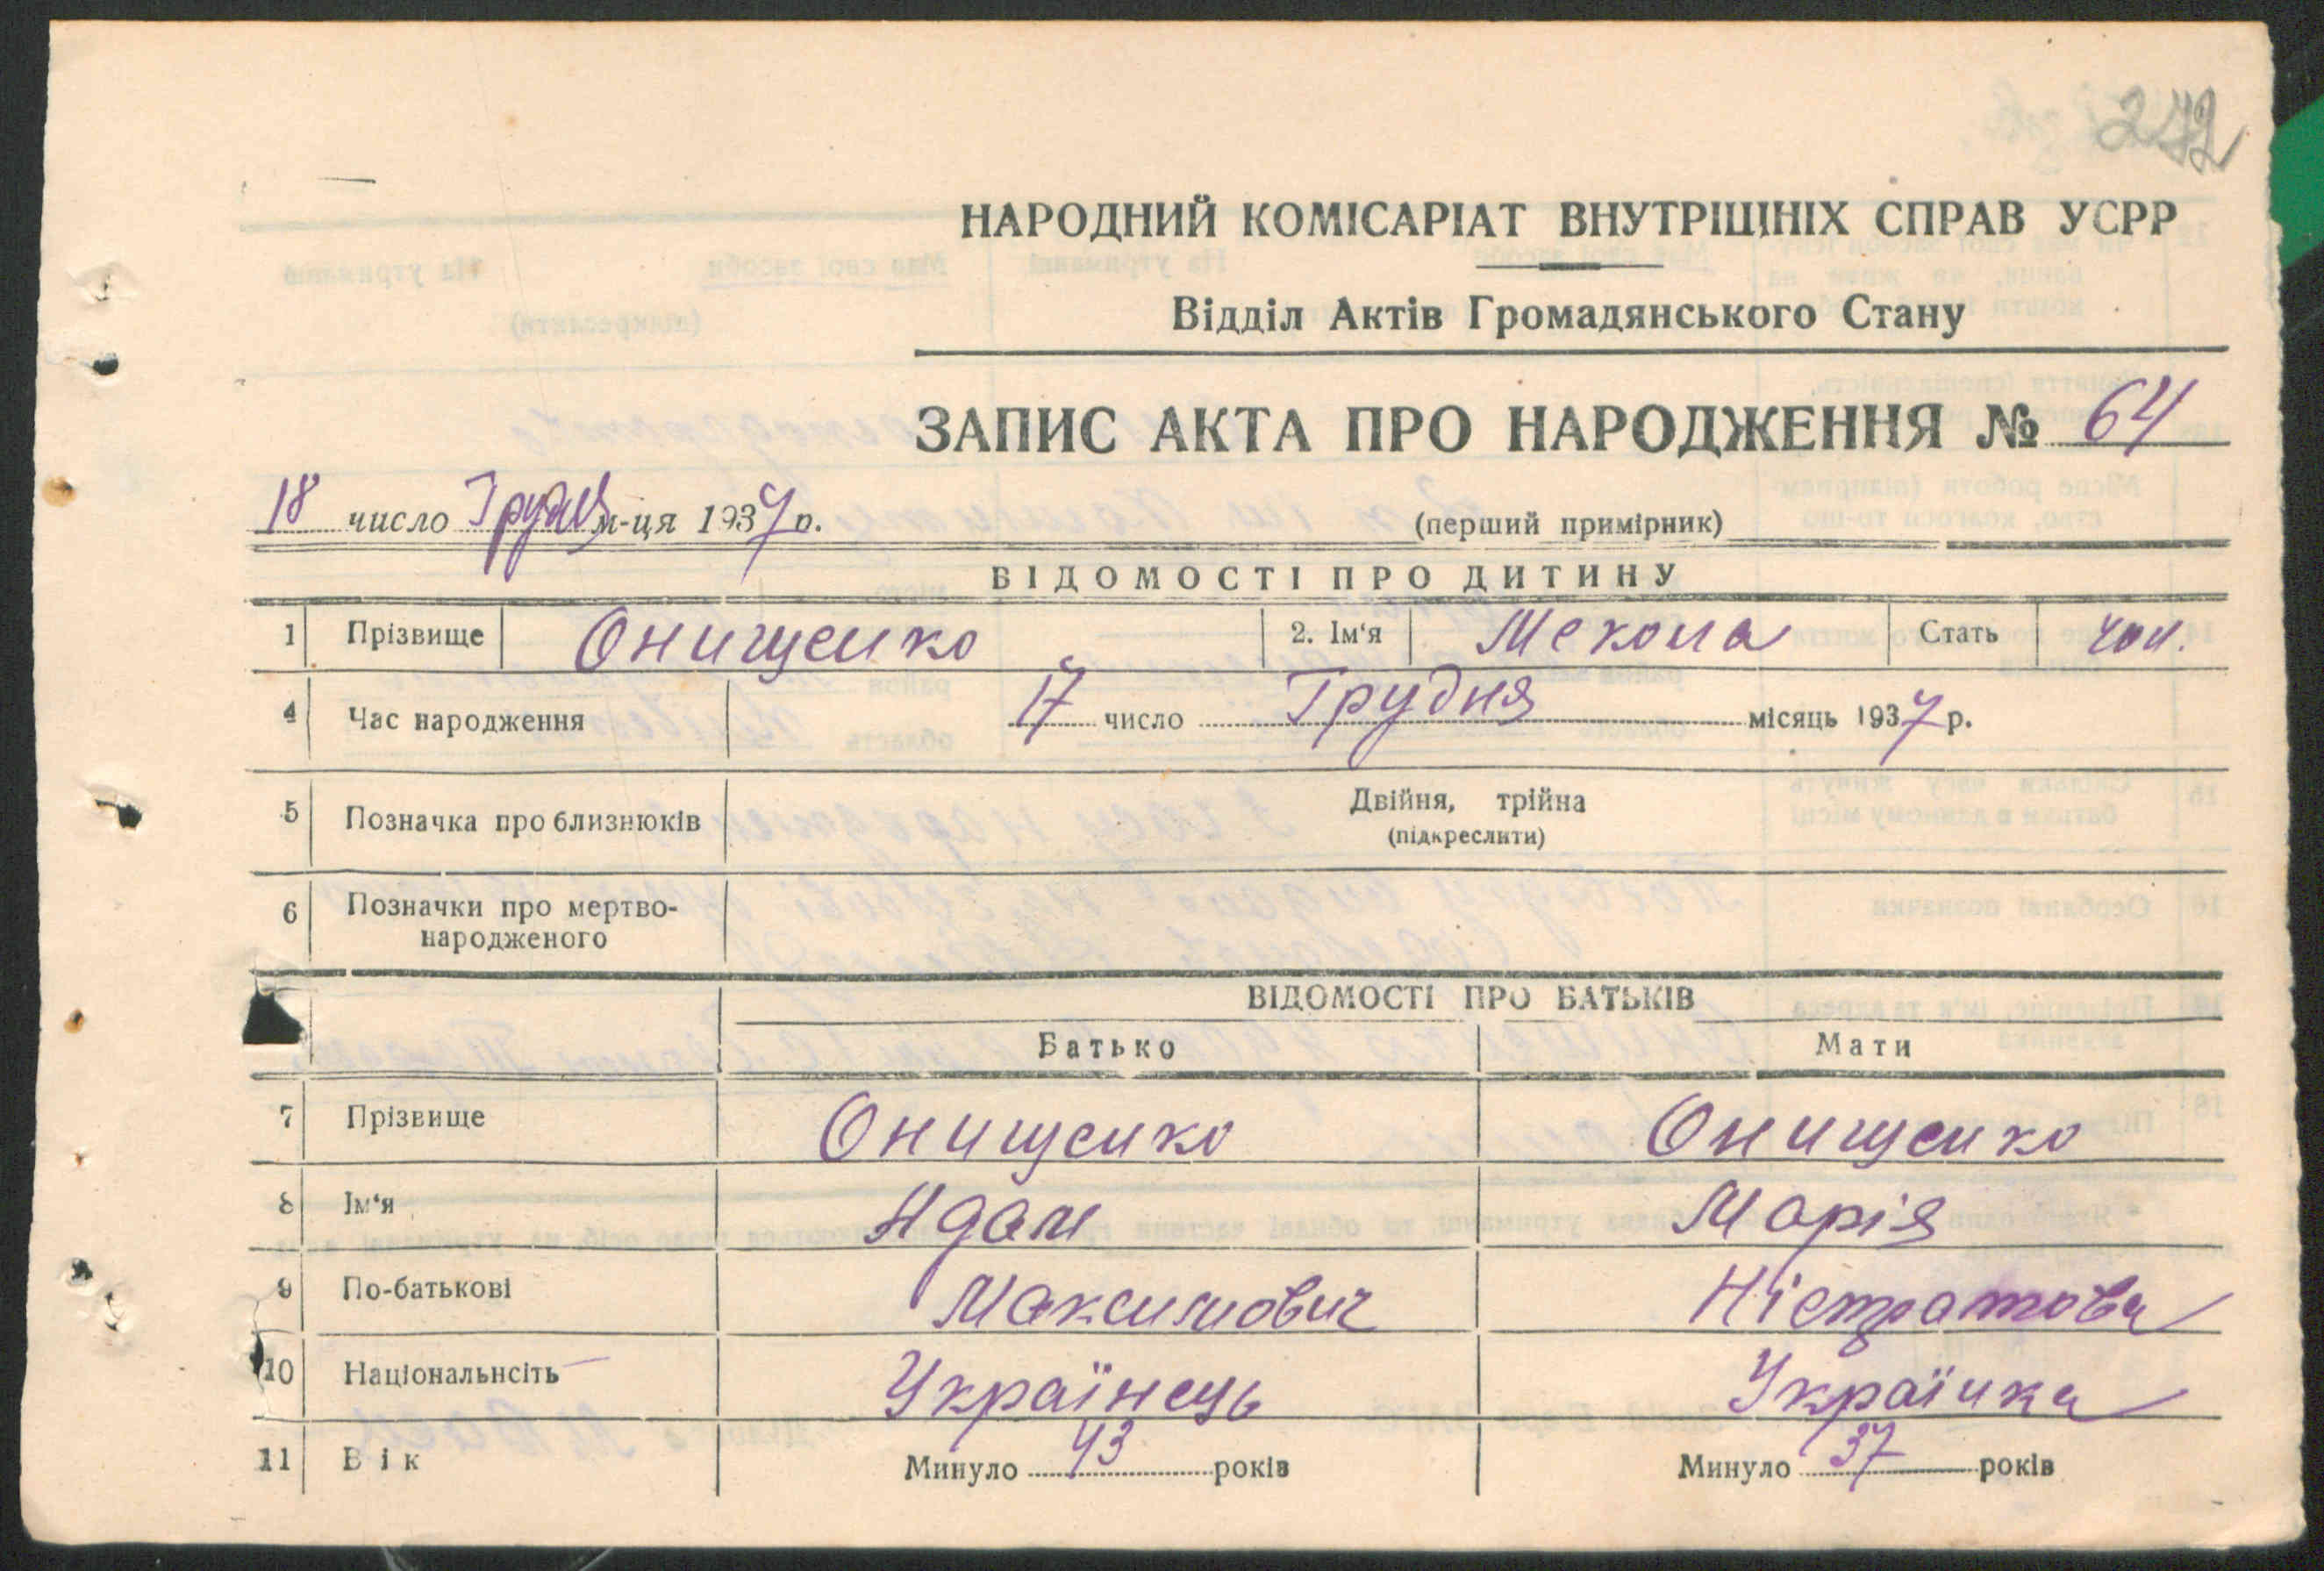 272
НАРОДНИЙ КОМІСАРІАТ ВНУТРІШНІХ СПРАВ УСРР
Відділ Актів Громадянського Стану
ЗАПИС АКТА ПРО НАРОДЖЕННЯ № 64
18 число Грудня м-ця 1937 р. (перший примірник)
ВІДОМОСТІ ПРО ДИТИНУ
1 Прізвище Онищенко 2. Ім‘я Мекола Стать чол.
4 Час народження 17 число Грудня місяць 1937 р.
5 Позначка про близнюків Двійня, трійна
(підкреслити)
6 Позначки про мертво-
народженого
ВІДОМОСТІ ПРО БАТЬКІВ
Батько Мати
7 Прізвище Онищенко Онищенко
8 Ім‘я Адам Марія
9 По-батькові Максимович Ністратова
10 Національнсіть Українець Українка
11 Вік Минуло 43 років Минуло 37 років